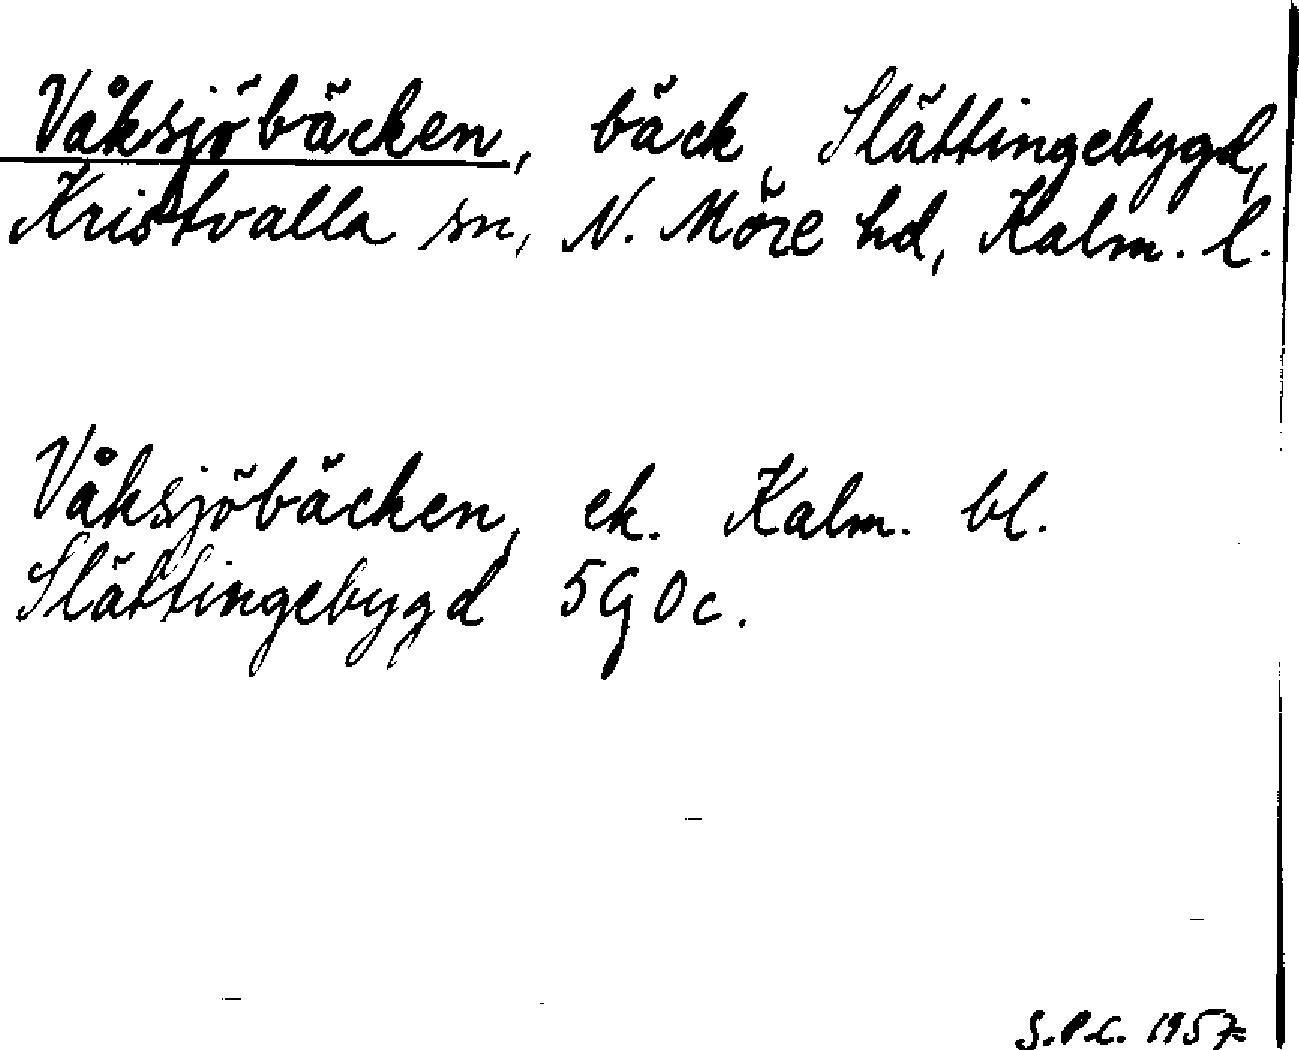 Våksjöbäcken, bäck, Slättingebygd,
Kristvalla sn, N. Möre hd, Kalm. l.
Våksjöbäcken, ek. Kalm. bl.
Slättingebygd 5G0c.
S.P.C. 1957